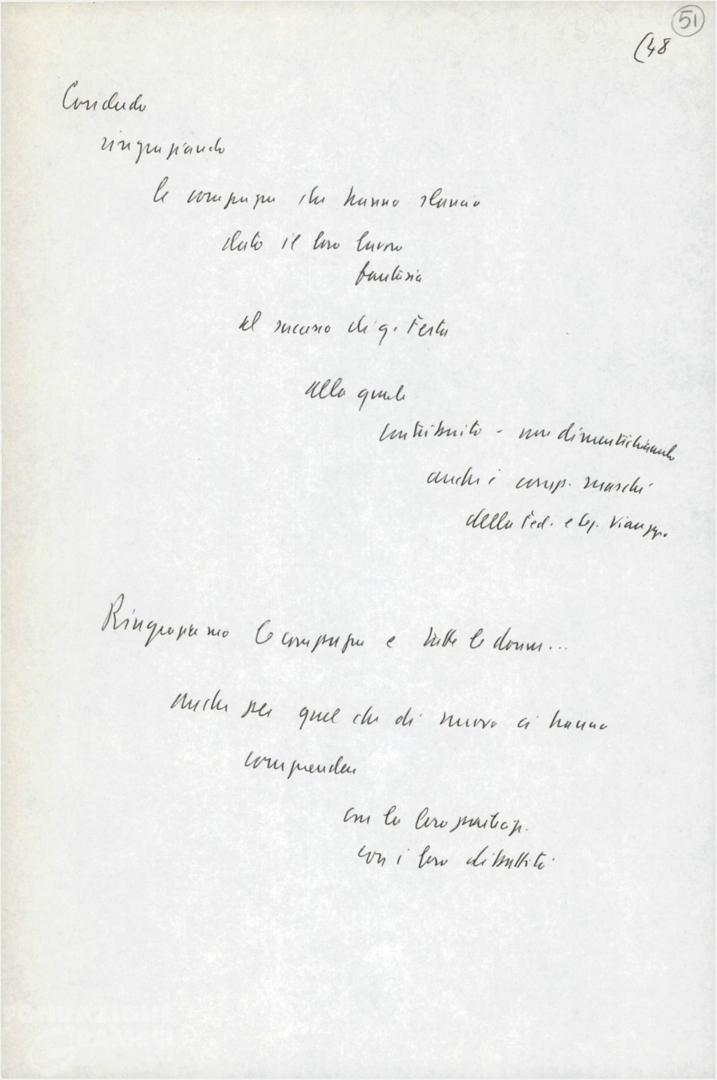 51
(48
Concludo
ringraziando
le compagne che hanno slancio
dato il loro lavoro
fantasia
al successo di q. Festa
alla quale
contribuito - non dimenticando
anche i comp. maschi
della Fed. e
Ringraziamo le compagne e tutte le donne...
anche per quel che di nuovo ci hanno
comprendere
con la loro partecip.
con i loro dibattiti
FONDAZIONE
GRAMSCI